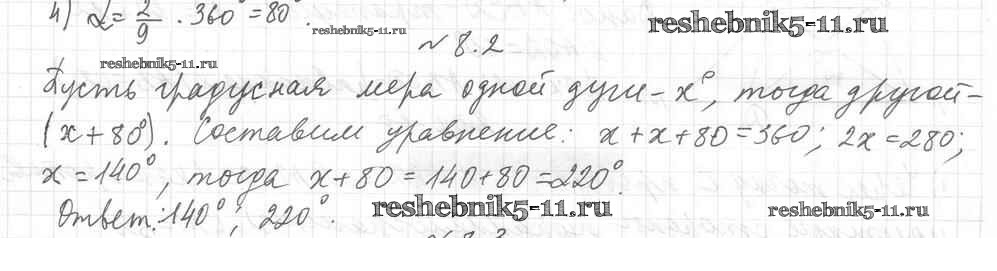 4) α = 2/9 · 360° = 80°.
reshebnik5-11.ru
reshebnik5-11.ru
№ 8.2
reshebnik5-11.ru
Пусть градусная мера одной дуги - x°, тогда другой -
(x + 80°). Составим уравнение: x + x + 80 = 360; 2x = 280;
x = 140°, тогда x + 80 = 140 + 80 = 220°.
Ответ: 140°; 220°.
reshebnik5-11.ru
reshebnik5-11.ru